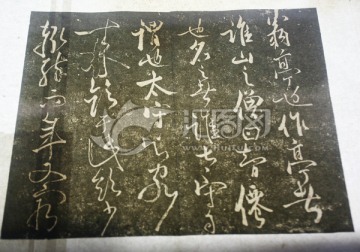 翁亭也作亭者
谁山之僧曰智僊
也名之者谁太守自
谓也太守与客
来饮于此饮少
辄醉而年又最